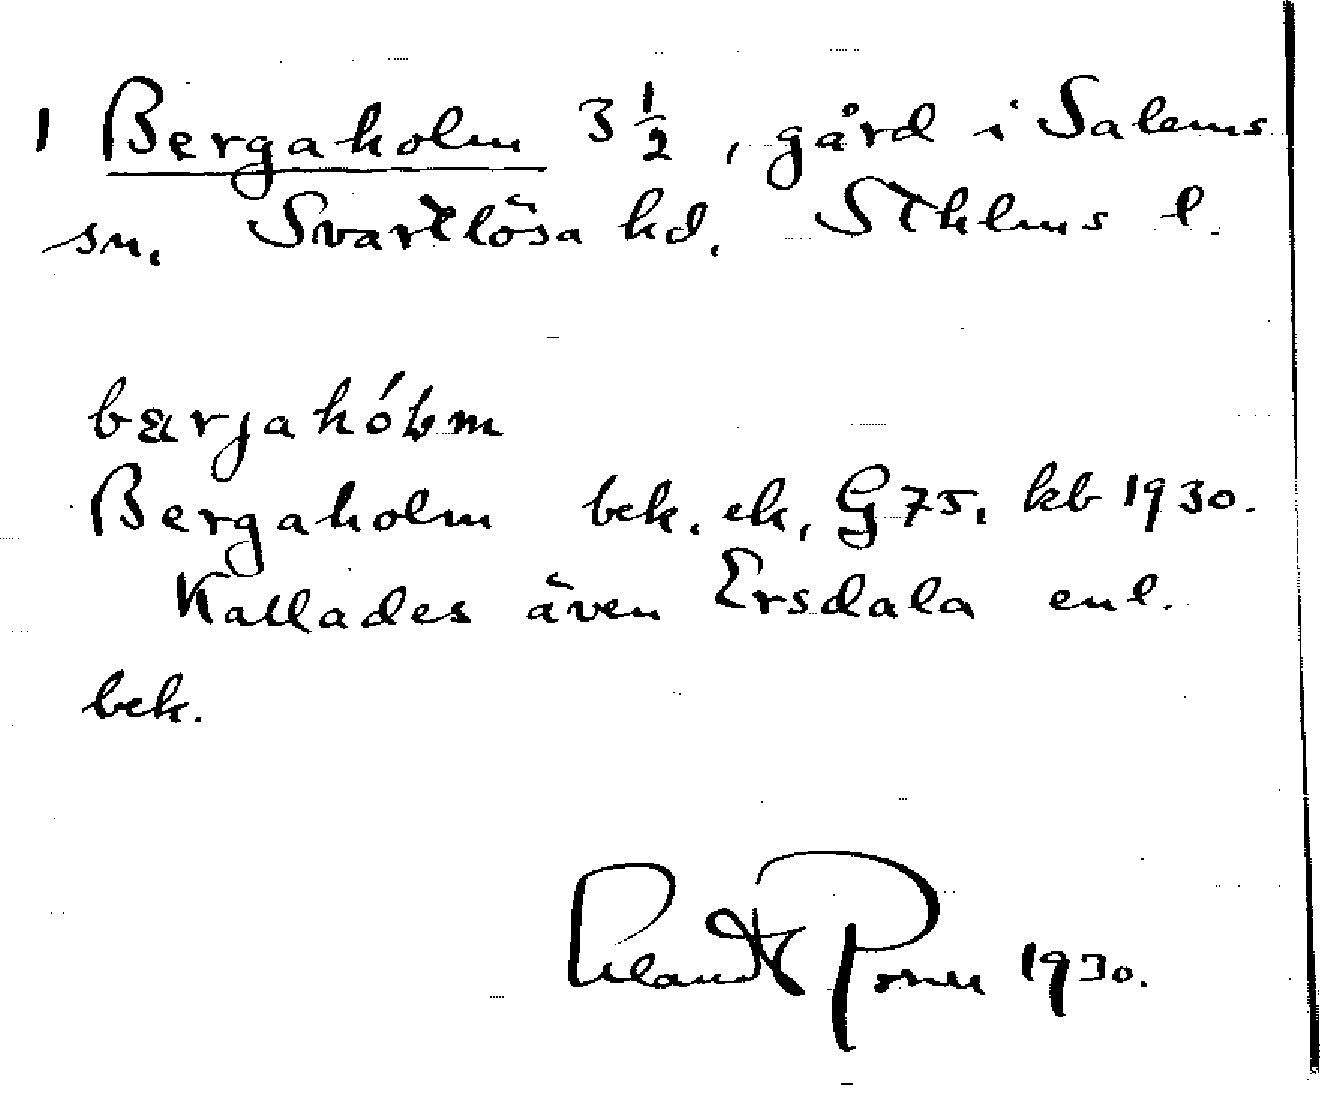 1 Bergaholm 3 1/2, gård i Salems
sn. Svartlösa hd. Sthlms l.
bærjahóɫm
Bergaholm bek. ek, G75, kb 1930.
Kallades även Ersdala enl.
bek.
1930.